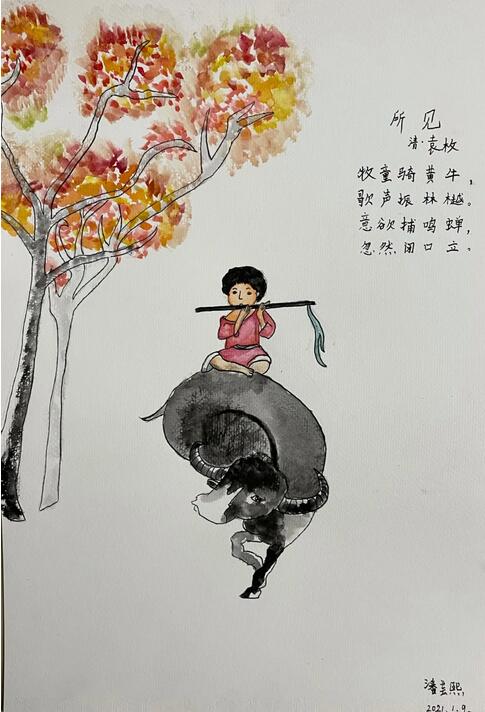 所见
清·袁枚
牧童骑黄牛，
歌声振林樾。
意欲捕鸣蝉，
忽然闭口立。
2021.1.9.